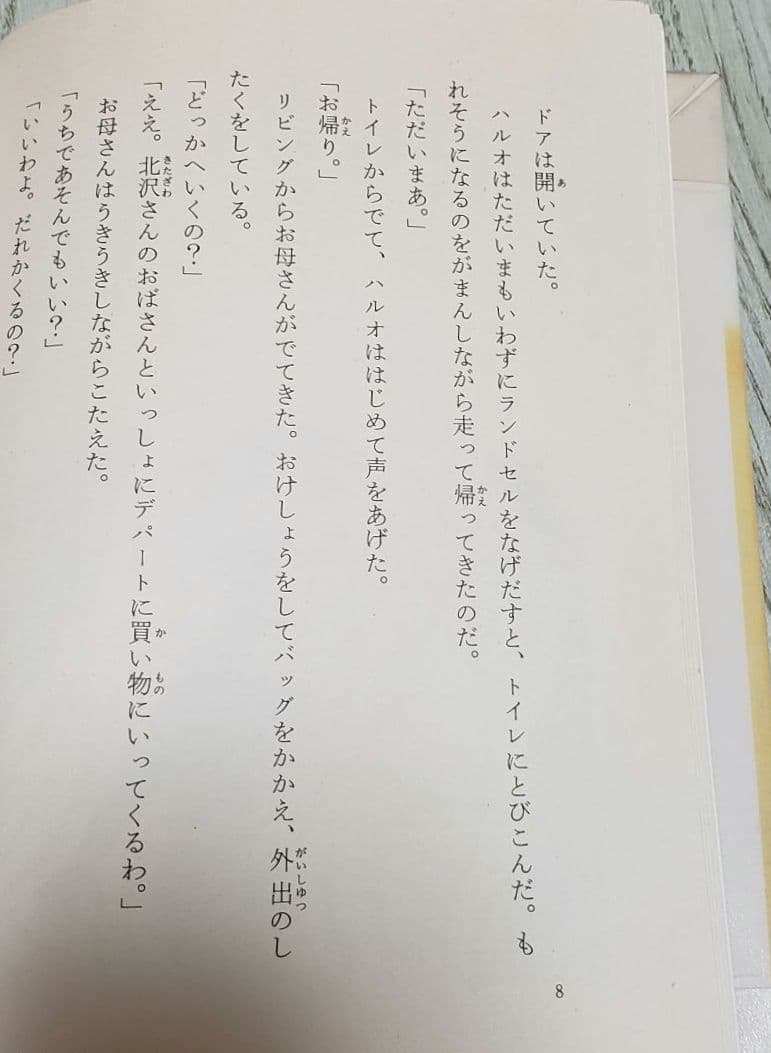 ドアは開いていた。
ハルオはただいまもいわずにランドセルをなげだすと、トイレにとびこんだ。も
れそうになるのをがまんしながら走って帰ってきたのだ。
「ただいまあ。」
トイレからでて、ハルオははじめて声をあげた。
「お帰り。」
リビングからお母さんがでてきた。おけしょうをしてバッグをかかえ、外出のし
たくをしている。
「どっかへいくの？」
「ええ。北沢さんのおばさんといっしょにデパートに買い物にいってくるわ。」
お母さんはうきうきしながらこたえた。
「うちであそんでもいい？」
「いいわよ。だれかくるの？」
8